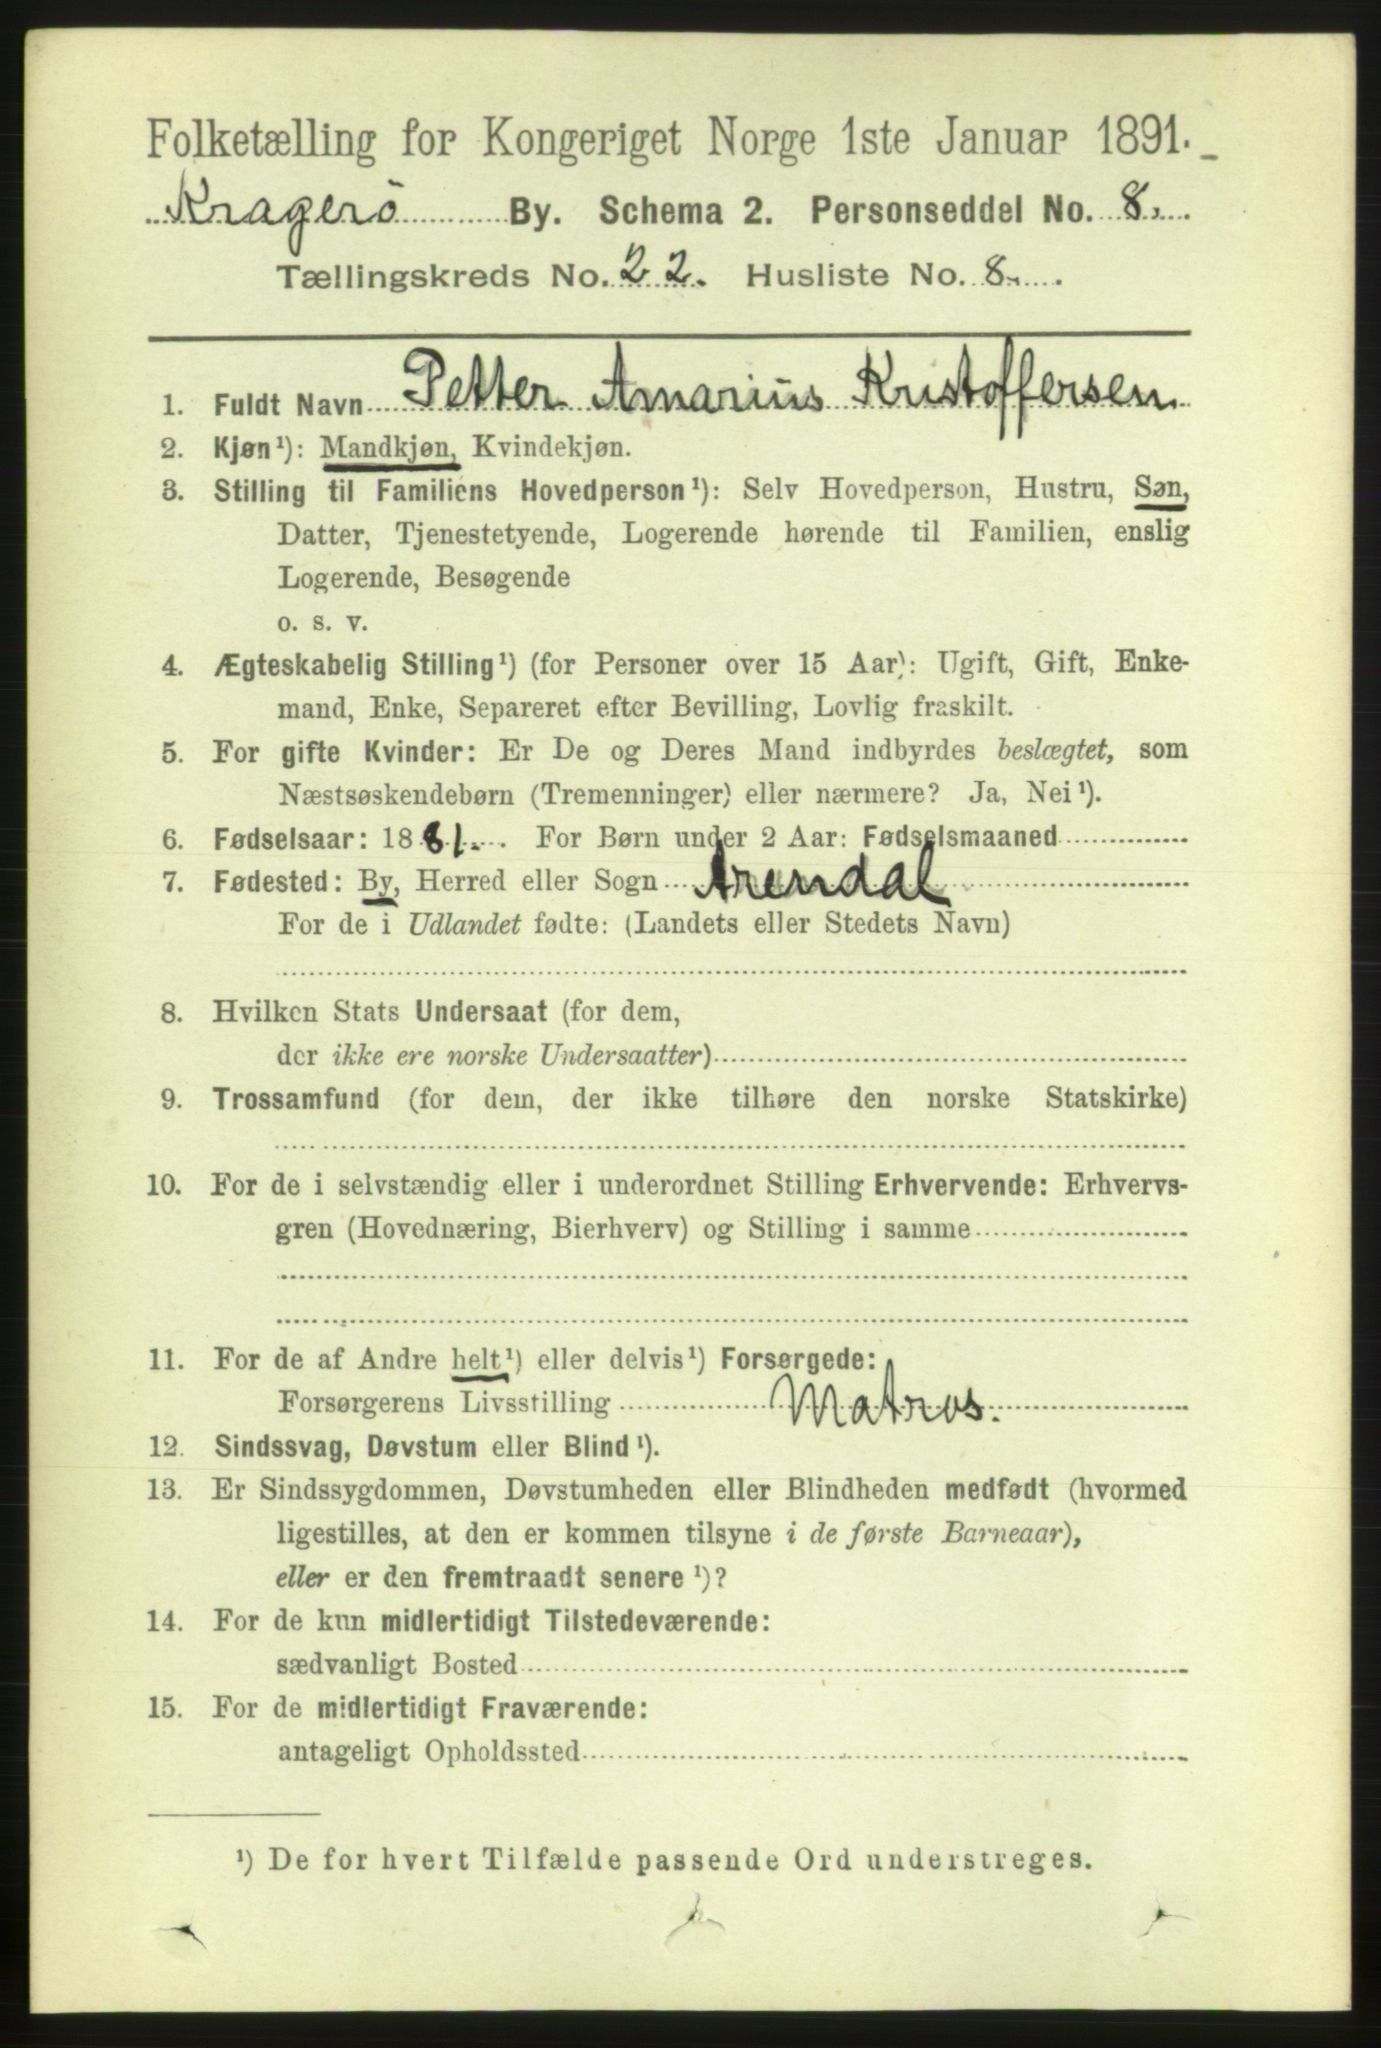 Folketælling for Kongeriget Norge 1ste Januar 1891.
Kragerö By. Schema 2. Personseddel No. 8.
Tællingskreds No. 22. Husliste No. 8.
1. Fuldt Navn Petter Amarius Kristoffersen
2. Kjøn¹): Mandkjøn, Kvindekjøn.
3. Stilling til Familiens Hovedperson¹): Selv Hovedperson, Hustru, Søn,
Datter, Tjenestetyende, Logerende hørende til Familien, enslig
Logerende, Besøgende
o. s. v.
4. Ægteskabelig Stilling¹) (for Personer over 15 Aar): Ugift, Gift, Enke-
mand, Enke, Separeret efter Bevilling, Lovlig fraskilt.
5. For gifte Kvinder: Er De og Deres Mand indbyrdes beslægtet, som
Næstsøskendebørn (Tremenninger) eller nærmere? Ja, Nei¹).
6. Fødselsaar: 1881. For Børn under 2 Aar: Fødselsmaaned
7. Fødested: By, Herred eller Sogn Arendal
For de i Udlandet fødte: (Landets eller Stedets Navn)
8. Hvilken Stats Undersaat (for dem,
der ikke ere norske Undersaatter)
9. Trossamfund (for dem, der ikke tilhøre den norske Statskirke)
10. For de i selvstændig eller i underordnet Stilling Erhvervende: Erhvervs-
gren (Hovednæring, Bierhverv) og Stilling i samme
11. For de af Andre helt¹) eller delvis¹) Forsørgede:
Forsørgerens Livsstilling Matros.
12. Sindssvag, Døvstum eller Blind¹).
13. Er Sindssygdommen, Døvstumheden eller Blindheden medfødt (hvormed
ligestilles, at den er kommen tilsyne i de første Barneaar),
eller er den fremtraadt senere¹)?
14. For de kun midlertidigt Tilstedeværende:
sædvanligt Bosted
15. For de midlertidigt Fraværende:
antageligt Opholdssted
¹) De for hvert Tilfælde passende Ord understreges.